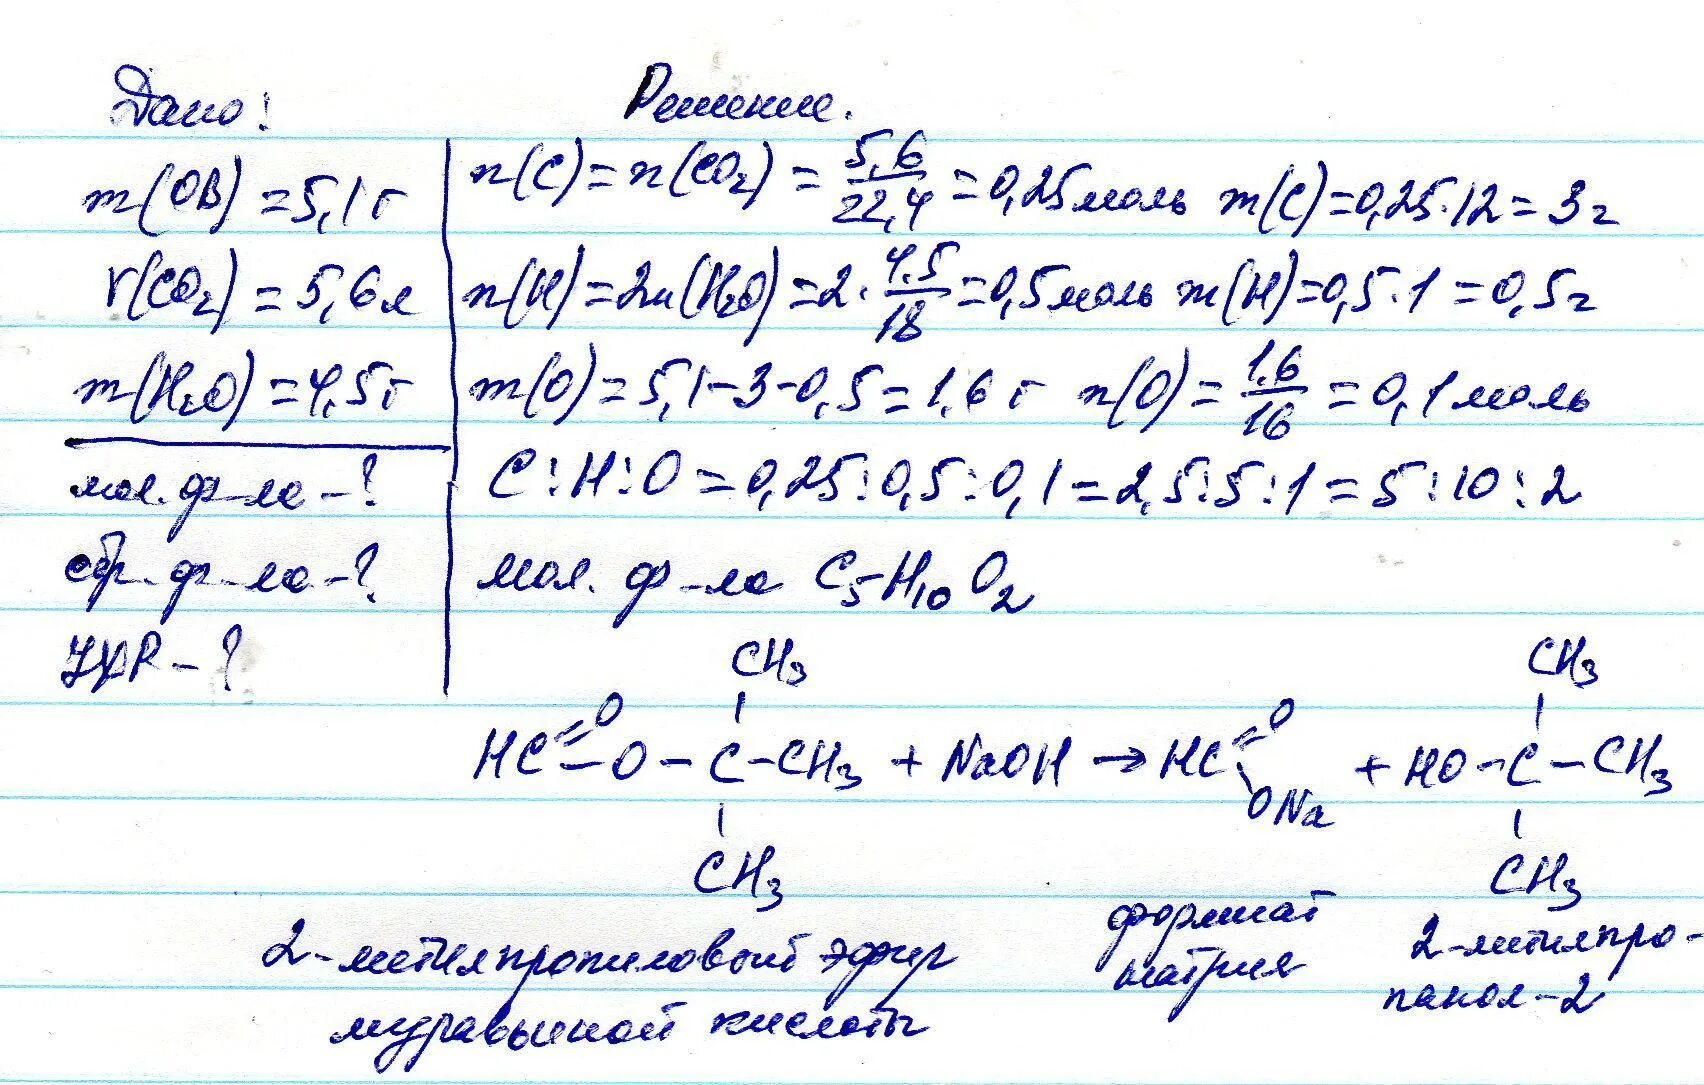 Дано:
m(ОВ) = 5,1 г
V(CO₂) = 5,6 л
m(H₂O) = 4,5 г
мол. ф-ла - ?
стр. ф-ла - ?
УХР - ?
Решение.
n(C) = n(CO₂) = 5,6/22,4 = 0,25 моль m(C) = 0,25·12 = 3 г
n(H) = 2n(H₂O) = 2 · 4,5/18 = 0,5 моль m(H) = 0,5·1 = 0,5 г
m(O) = 5,1 - 3 - 0,5 = 1,6 г n(O) = 1,6/16 = 0,1 моль
C : H : O = 0,25 : 0,5 : 0,1 = 2,5 : 5 : 1 = 5 : 10 : 2
мол. ф-ла C₅H₁₀O₂
CH₃ CH₃
O O
HC - O - C - CH₃ + NaOH → HC + HO - C - CH₃
ONa
CH₃ CH₃
2-метилпропиловый эфир
муравьиной кислоты
формиат
натрия
2-метилпро-
панол-2